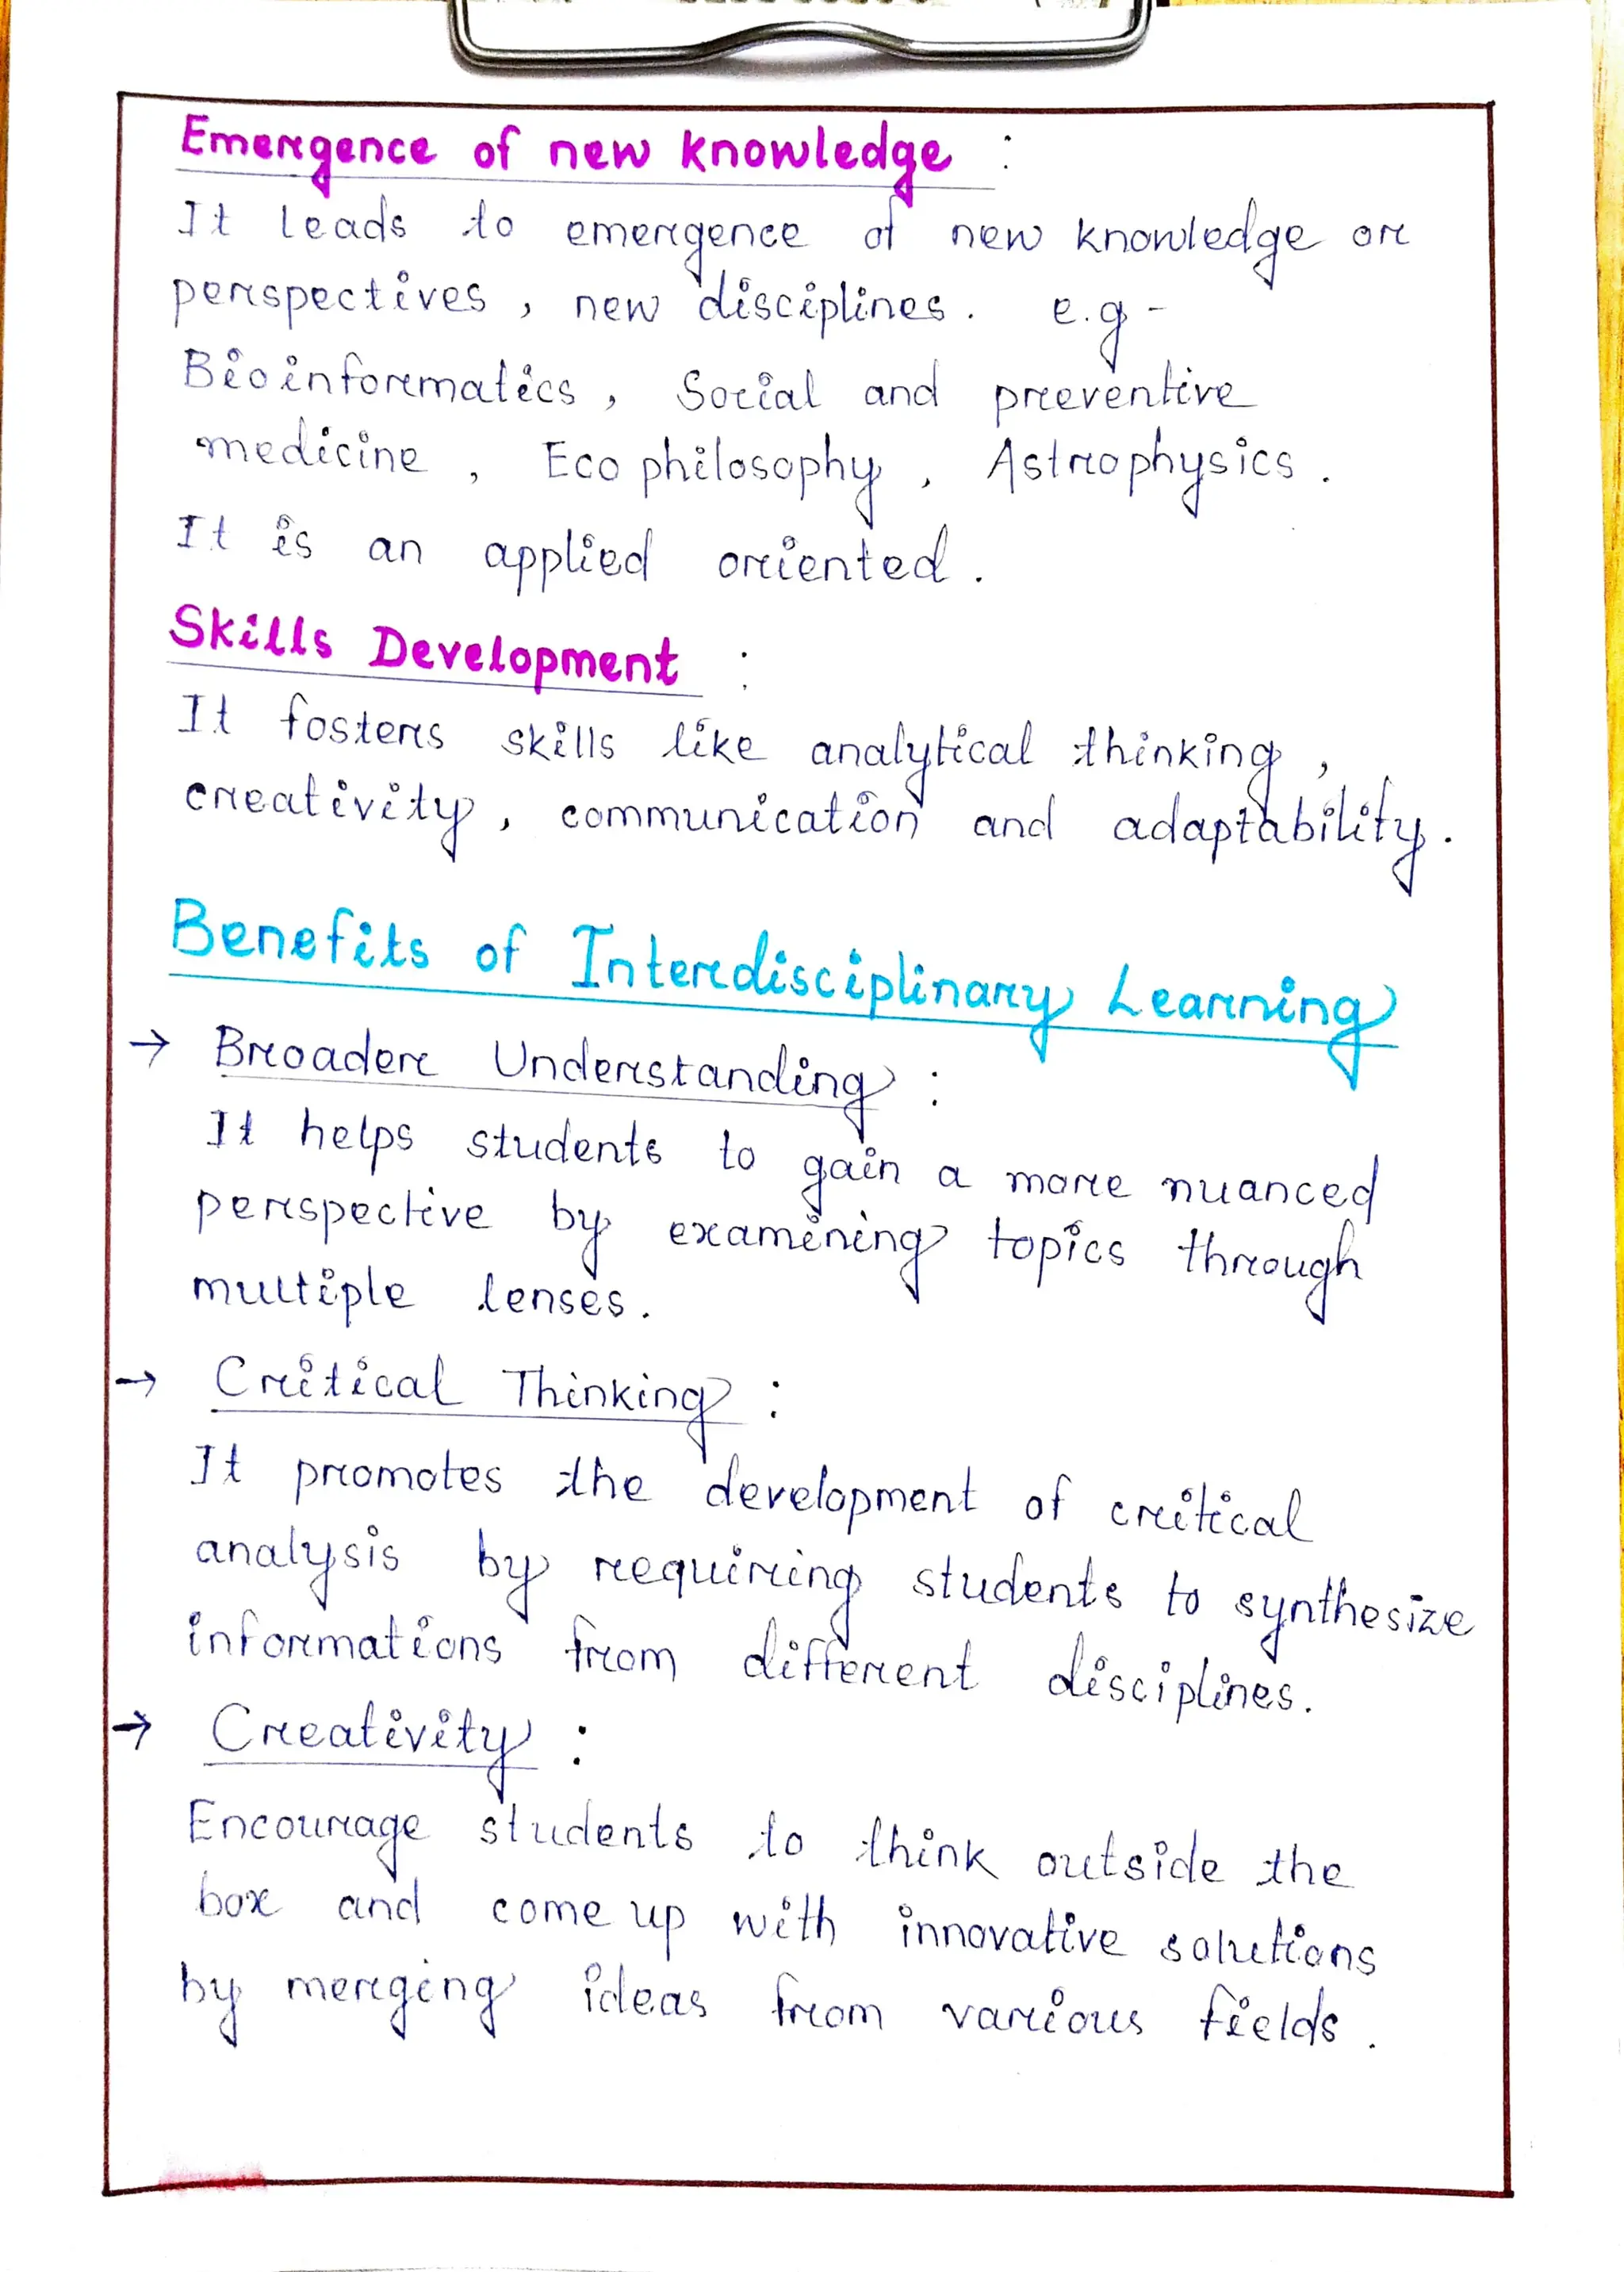 Emergence of new knowledge :
It leads to emergence of new knowledge or
perspectives, new disciplines. e.g -
Bioinformatics, Social and preventive
medicine, Eco philosophy, Astrophysics.
It is an applied oriented.
Skills Development :
It fosters skills like analytical thinking,
creativity, communication and adaptability.
Benefits of Interdisciplinary Learning
→ Broader Understanding :
It helps students to gain a more nuanced
perspective by examining topics through
multiple lenses.
→ Critical Thinking :
It promotes the development of critical
analysis by requiring students to synthesize
informations from different disciplines.
→ Creativity :
Encourage students to think outside the
box and come up with innovative solutions
by merging ideas from various fields.